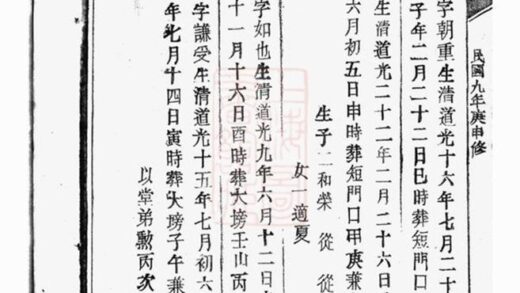 民國九年庚申修
字朝重生清道光十六年七月二十
子年二月二十二日巳時葬短門口
生清道光二十二年二月二十六日
六月初五日申時葬短門口甲庚兼
生子二和榮 從 從
女一適夏
字如也生清道光九年六月十二日
十一月十六日酉時葬大塝壬山丙
字謙受生清道光十五年七月初六
年七月十四日寅時葬大塝子午兼
以堂弟勲丙次